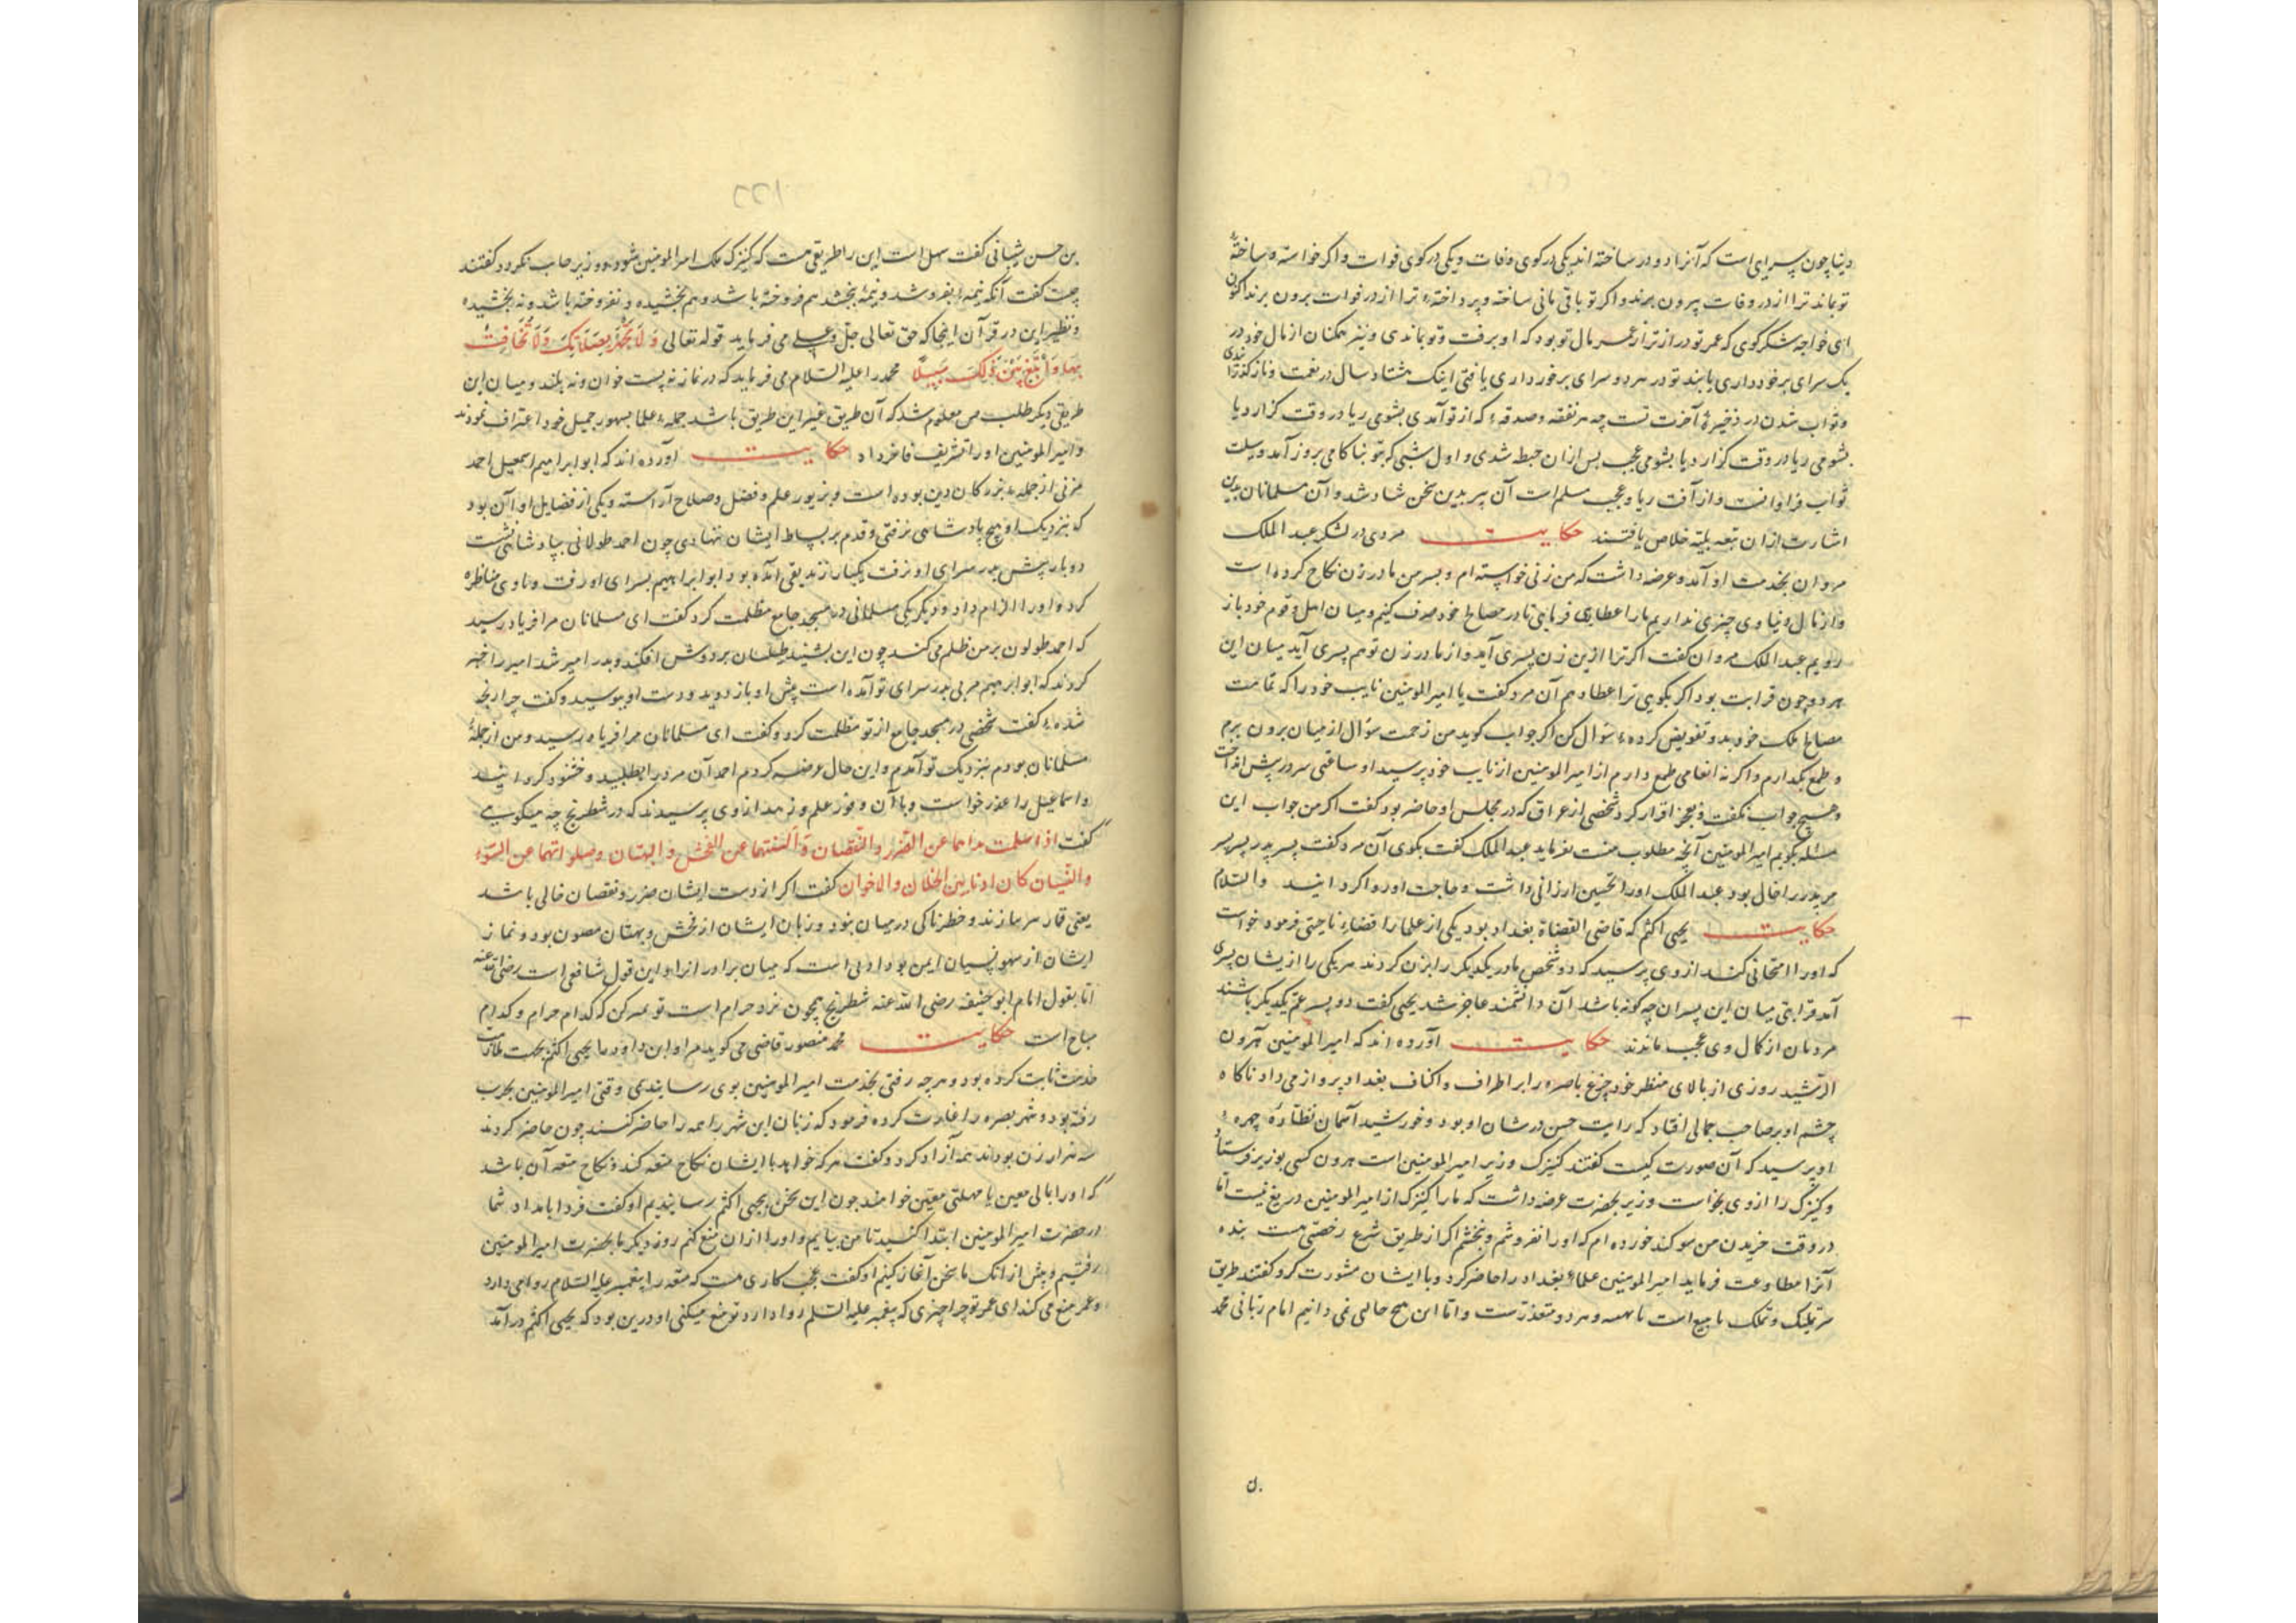 دنیا چون سرای است که آنرا دو در ساخته اند یکی در کوی وفات و یکی در کوی فوات و اگر خواسته و ساختهٔ
تو بماند ترا از در وفات بیرون برند و اگر تو باقی مانی ساخته و پرداختهٔ ترا از در فوات برون برند اکنون
ای خواجه شکر گوی که عمر تو دراز تر از عمر مال تو بود که او برفت و تو بماندی و نیز همکنان از مال خود در
یک سرای برخورداری یابند تو در هر دو سرای برخورداری یافتی اینک هشتاد سال در نعمت و ناز گذرانیدی
و ثواب شدن در ذخیرهٔ آخرت تست چه هر نفقه و صدقهٔ که از تو آمدی بشومی ریا در وقت گزار دیا
بشومی ریا در وقت گزار دیا بشومی عجب پس ازان حبط شدی و اول شبی که بتو بناکامی بروز آمد وسیلت
ثواب فراوانست و از آفت ریا و عجب مسلم است آن پیر بدین سخن شاد شد و آن مسلمانان بدین
اشارت ازان تبعه بلیه خلاص یافتند حکایت مردی در لشکر عبد الملک
مروان بخدمت او آمد و عرضه داشت که من زنی خواسته ام و پسر من مادر زن نکاح کرده است
و از مال دنیاوی چیزی نداریم ما را عطایی فرمایی تا در مصالح خود صرف کنیم و میان اهل و قوم خود باز
رویم عبد الملک مروان گفت اگر ترا ازین زن پسری آید و از مادر زن تو هم پسری آید میان این
هر دو چون قرابت بود اگر بگویی ترا عطا دهم آن مرد گفت یا امیر المومنین نایب خود را که تمامت
مصالح ملک خود بدو تفویض کردهٔ سؤال کن اگر جواب گوید من زحمت سؤال از میان برون برم
و طمع بگذارم و اگر نه انعامی طمع دارم از امیر المومنین از نایب خود پرسید او ساعتی سر در پیش انداخت
و هیچ جواب نگفت و بعجز اقرار کرد شخصی از عراق که در مجلس او حاضر بود گفت اگر من جواب این
مسئله بگویم امیر المومنین آنچه مطلوب منست بفرماید عبد الملک گفت بگوی آن مرد گفت پسر پدر پسر پسر
مر پدر را خال بود عبد الملک او را تحسین ارزانی داشت و حاجت او روا کردانید والسلام
حکایت یحیی اکثم که قاضی القضاة بغداد بود یکی از علما را قضاء ناحیتی فرمود خواست
که او را امتحانی کند از وی پرسید که دو شخص مادر یکدیگر را بزن کردند هر یکی را ازیشان پسری
آمد قرابتی میان این پسران چه گونه باشد آن دانشمند عاجز شد یحیی گفت دو پسر عم یکدیگر باشند
مردمان از کمال وی عجب ماندند حکایت آورده اند که امیر المومنین هرون
الرشید روزی از بالای منظر خود چرغ باصره را بر اطراف و اکناف بغداد پرواز می داد ناگاه
چشم او بر صاحب جمالی افتاد که رایت حسن در شان او بود و خورشید آسمان نظارهٔ چهرهٔ
او پرسید که آن صورت کیست گفتند کنیزک وزیر امیر المومنین است هرون کسی بوزیر فرستاد
و کنیزک را از وی بخواست وزیر بحضرت عرضه داشت که ما را کنیزک از امیر المومنین دریغ نیست اما
در وقت خریدن من سوگند خورده ام که او را نفروشم و نبخشم اگر از طریق شرع رخصتی هست بنده
آنرا مطاوعت فرماید امیر المومنین علماء بغداد را حاضر کرد و با ایشان مشورت کرد گفتند طریق
تملیک و تملک یا بیع است یا هبه و هر دو متعذرست و اما این هیچ حالی نمی دانیم امام ربانی محمد
بن حسن شیبانی گفت سهل است این را طریقی هست که کنیزک ملک امیر المومنین شود و وزیر حانث نگردد گفتند
چیست گفت آنکه نیمهٔ بفروشد و نیمهٔ بخشد هم فروخته باشد و هم بخشیده و نفروخته باشد و نه بخشیده
و نظیر این در قرآن اینجا که حق تعالی جل و علا می فرماید قوله تعالی وَلَا تَجْهَرْ بِصَلَاتِكَ وَلَا تُخَافِتْ
بِهَا وَابْتَغِ بَيْنَ ذَلِكَ سَبِيلًا محمد را علیه السلام می فرماید که در نماز نه پست خوان و نه بلند و میان این
طریقی دیگر طلب من معلوم شد که آن طریق غیر این طریق باشد جملهٔ علما بجهور جمیل خود اعتراف نمودند
و امیر المومنین او را تشریف فاخر داد حکایت آورده اند که ابو ابراهیم اسمعیل احمد
مزنی از جملهٔ بزرکان دین بوده است و بزیور علم و فضل و صلاح آراسته و یکی از فضایل او آن بود
که بنزدیک او هیچ پادشاهی نرفتی و قدم بر بساط ایشان ننهادی چون احمد طولانی بپادشاهی نشست
دو بار پیش بدر سرای او نرفت یکبار زندیقی آمده بود ابو ابراهیم بسرای او رفت و با وی مناظره
کرد و او را الزام داد و دیگر یکی مسلمانی در مسجد جامع مظلمت کرد گفت ای مسلمانان مرا فریاد رسید
که احمد طولون بر من ظلم می کند چون این بشنید طیلسان بر دوش افکند و بدر امیر شد امیر را خبر
کردند که ابو ابرهیم مزنی بدر سرای تو آمده است پیش او باز دوید و دست او ببوسید و گفت چرا رنجه
شدهٔ گفت شخصی در مسجد جامع از تو مظلمت کرد و گفت ای مسلمانان مرا فریاد رسید و من از جملهٔ
مسلمانان بودم بنزدیک تو آمدم و این حال عرضه کردم احمد آن مرد را بطلبید و خشنود کردانید
و اسماعیل را عذر خواست و با آن وفور علم و زهد از وی پرسیدند که در شطرنج چه میگویی
گفت اذا سلمت یداهما عن الضرر والنقصان والسنتهما عن الفحش والبهتان وصلواتهما عن السوء
والنسیان کان ادبا بین الخلان والاخوان گفت اگر از دست ایشان ضرر و نقصان خالی باشد
یعنی قمار سر نبازند و خطرناکی در میان نبود و زبان ایشان از فحش و بهتان مصون بود و نماز
ایشان از سهو و نسیان ایمن بود ادبی است که میان برادران را و این قول شافعی است رضی الله عنه
اما بقول امام ابو حنیفه رضی الله عنه شطرنج همچون نرد حرام است تو بهه کن که کدام حرام و کدام
مباح است حکایت محمد منصور قاضی می گوید مرا و ابن داود با یحیی اکثم بحکم ملازمت
خدمت ثابت کرده بود و هر چه رفتی بخدمت امیر المومنین بوی رسانیدمی وقتی امیر المومنین بحرب
رفته بود و شهر بصره را غارت کرده فرمود که زنان این شهر را همه را حاضر کنند چون حاضر کردند
سه هزار زن بودند همه آزاد کرد و گفت هر که خواهد با ایشان نکاح متعه کند و نکاح متعه آن باشد
که او را بمالی معین یا مهلتی معین خواهند چون این سخن بیحیی اکثم رسانیدیم او گفت فردا بامداد شما
در حضرت امیر المومنین ابتدا کنید تا من بیایم و او را ازان منع کنم روز دیگر ما بحضرت امیر المومنین
رفتیم و پیش از انک ما سخن آغاز کنیم او گفت عجب کاری هست که متعه را پیغمبر علیه السلام روا می دارد
و عمر منع می کند ای عمر تو چرا چیزی که پیغمبر علیه السلم روا دارد تو منع میکنی او درین بود که یحیی اکثم در آمد